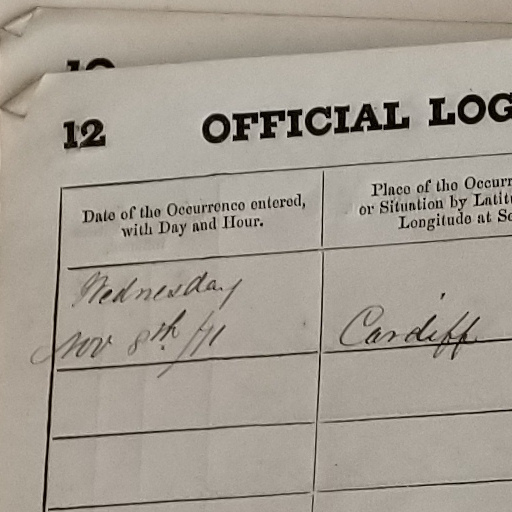 12 OFFICIAL LOG
Date of the Occurrence entered,
with Day and Hour.
Place of the Occurr
or Situation by Latit
Longitude at Se
Wednesday
Nov 8th /71
Cardiff